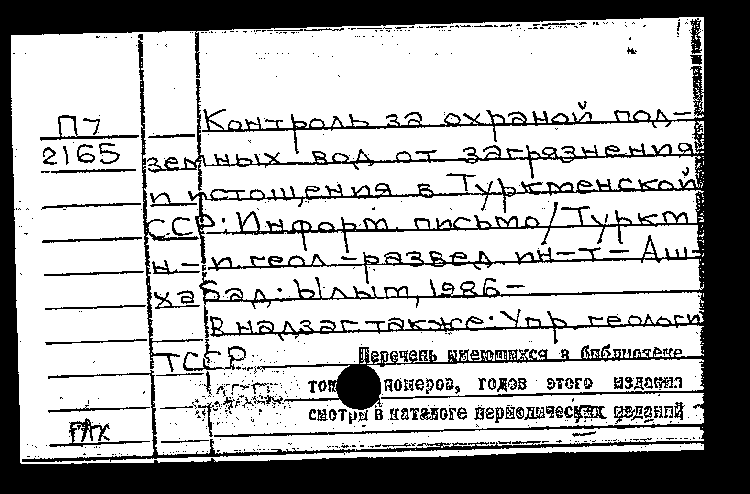 П7
Контроль за охраной под=
2165
земных вод от загрязнения
и истощения в Туркменской
ССР: Информ. письмо/Туркм
н.-и. геол.-развед. ин-т.- Аш-
хабад: Ылым, 1986-
В надзаг также: Упр. геологи
ТССР
Перечень имеющихся в библиотеке
номеров, годов этого издания
смотри в каталоге периодических изданий